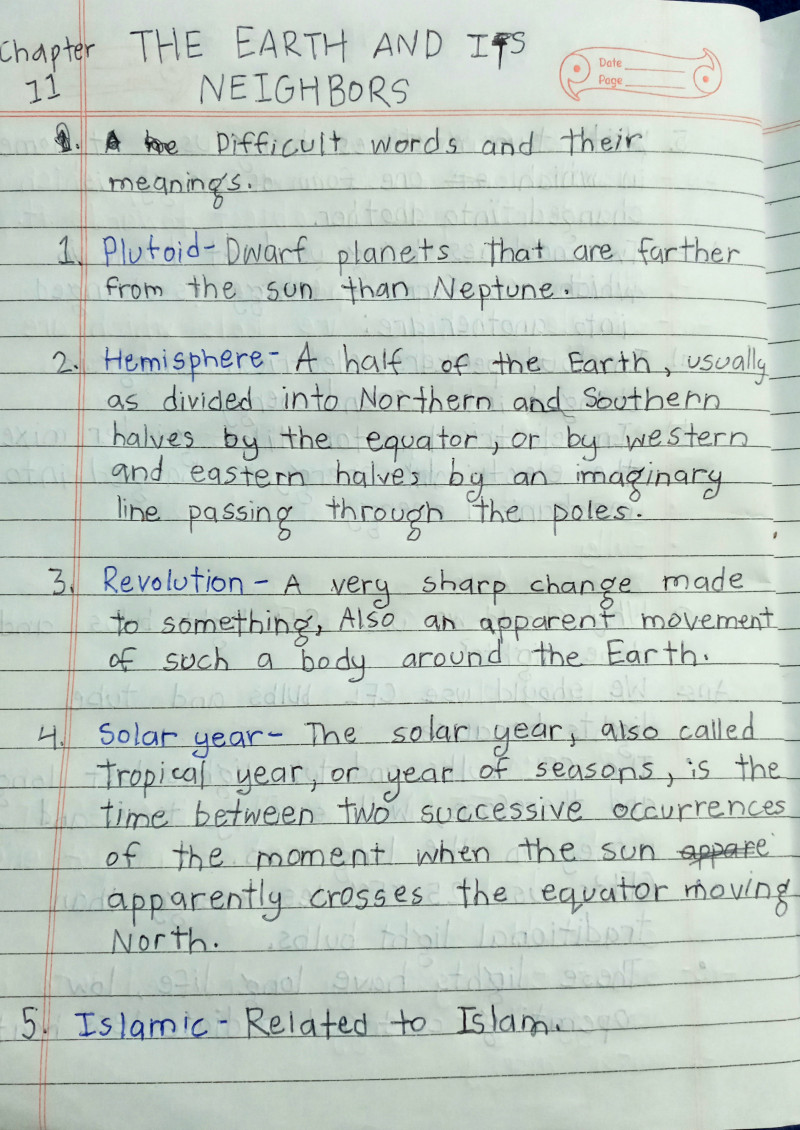 Chapter THE EARTH AND ITS
11 NEIGHBORS
Date
Page
Difficult words and their
meanings.
1. Plutoid- Dwarf planets that are farther
from the sun than Neptune.
2. Hemisphere- A half of the Earth, usually
as divided into Northern and Southern
halves by the equator, or by western
and eastern halves by an imaginary
line passing through the poles.
3. Revolution - A very sharp change made
to something, Also an apparent movement
of such a body around the Earth.
4. Solar year- The solar year, also called
tropical year, or year of seasons, is the
time between two successive occurrences
of the moment when the sun appare
apparently crosses the equator moving
North.
5. Islamic - Related to Islam.